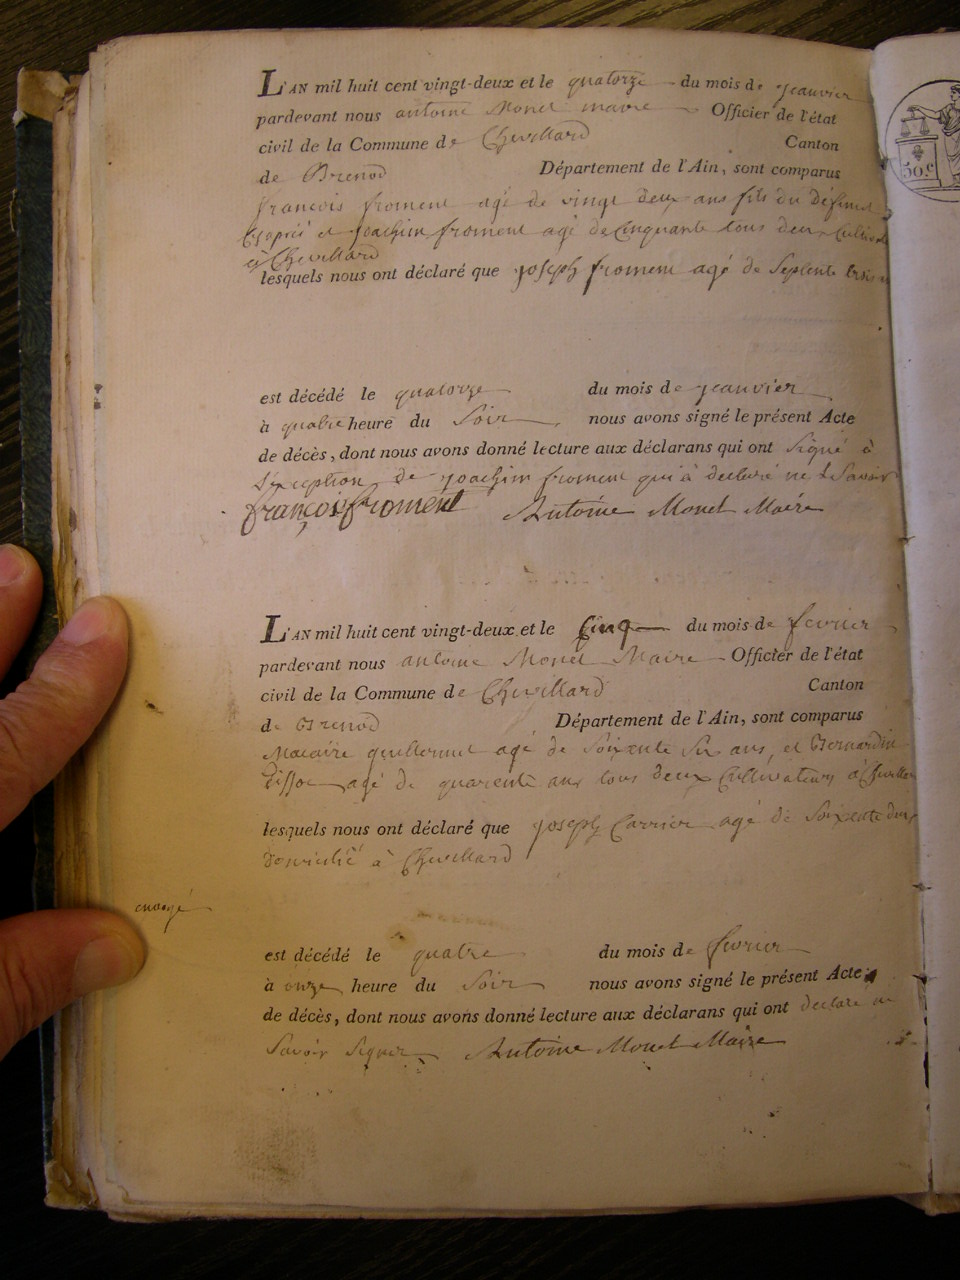 L'AN mil huit cent vingt-deux et le quatorze du mois de jeanvier
pardevant nous antoine Monet maire Officier de l'état
civil de la Commune de Chevillard Canton
de Brenod Département de l'Ain, sont comparus
francois froment agé de vingt deux ans fils du défunt
Cyaprès et joachim froment agé de Cinquante tous deux Cultiv
à Chevillard
lesquels nous ont déclaré que joseph froment agé de Septente trois
est décédé le quatorze du mois de jeanvier
à quatre heure du Soir nous avons signé le présent Acte
de décès, dont nous avons donné lecture aux déclarans qui ont Signé à
L'exception de joachim froment qui à declaré ne le Savoir
françois froment Antoine Monet Maire
L'AN mil huit cent vingt-deux et le Cinq du mois de fevrier
pardevant nous antoine Monet Maire Officier de l'état
civil de la Commune de Chevillard Canton
de Brenod Département de l'Ain, sont comparus
Macaire guillermet agé de Soixente Six ans, et Bernardin
Tissot agé de quarente ans tous deux Cultivateurs à Chevillar
lesquels nous ont déclaré que joseph Carrier agé de Soixente
Domicilié à Chevillard
est décédé le quatre du mois de fevrier
à onze heure du Soir nous avons signé le présent Acte
de décès, dont nous avons donné lecture aux déclarans qui ont declaré ne
Savoir Signer Antoine Monet Maire
50 c